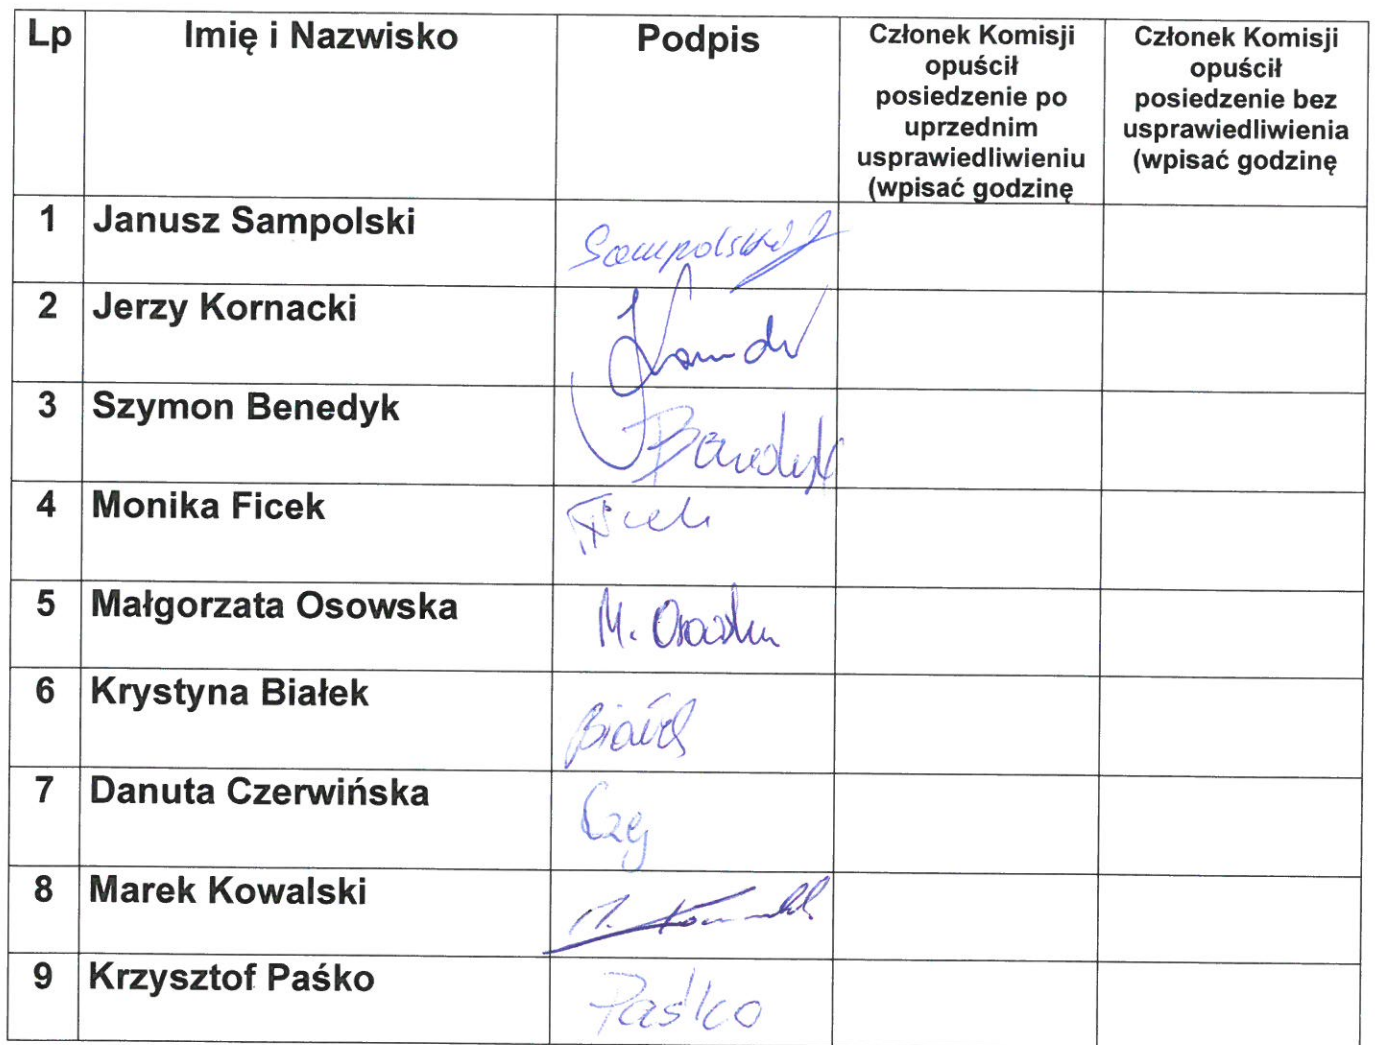 Lp Imię i Nazwisko Podpis Członek Komisji opuścił posiedzenie po uprzednim usprawiedliwieniu (wpisać godzinę Członek Komisji opuścił posiedzenie bez usprawiedliwienia (wpisać godzinę
1 Janusz Sampolski Sampolski J
2 Jerzy Kornacki
3 Szymon Benedyk Benedyk
4 Monika Ficek Ficek
5 Małgorzata Osowska M. Osowska
6 Krystyna Białek Białek
7 Danuta Czerwińska
8 Marek Kowalski M.
9 Krzysztof Paśko Paśko